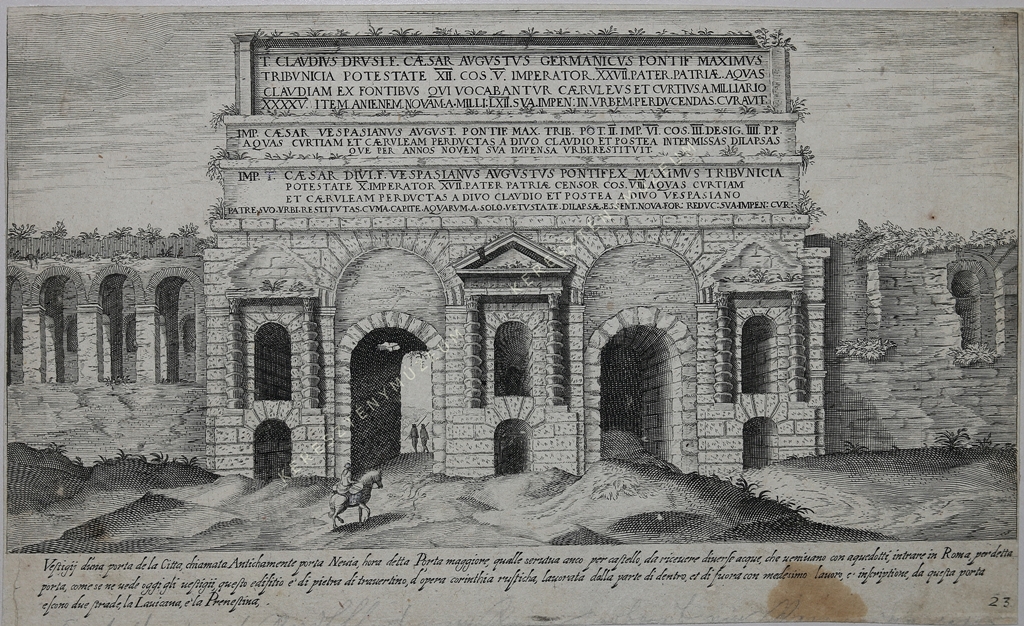 T. CLAVDIVS DRVSI.F. CÆSAR AVGVSTVS GERMANICVS PONTIF MAXIMVS
TRIBVNICIA POTESTATE XII. COS V. IMPERATOR XXVII.PATER.PATRIÆ.AQVAS
CLAVDIAM EX FONTIBVS QVI VOCABANTVR CÆRVLEVS ET CVRTIVS A MILLIARIO
XXXXV. ITEM ANIENEM NOVAM.A.MILLI.LXII.SVA.IMPEN:IN.VRBEM.PERDVCENDAS.CVRAVIT.
IMP. CÆSAR VESPASIANVS AVGVST. PONTIF MAX. TRIB. POT.II.IMP.VI.COS.III.DESIG.IIII.P.P.
AQVAS CVRTIAM ET CÆRVLEAM PERDVCTAS A DIVO CLAVDIO ET POSTEA INTERMISSAS DILAPSAS
QVE PER ANNOS NOVEM SVA IMPENSA VRBI.RESTITVIT
IMP. T. CÆSAR DIVI.F. VESPASIANVS AVGVSTVS PONTIFEX MAXIMVS TRIBVNICIA
POTESTATE X.IMPERATOR XVII.PATER PATRIÆ CENSOR COS. VIII AQVAS CVRTIAM
ET CÆRVLEAM PERDVCTAS A DIVO CLAVDIO ET POSTEA A DIVO VESPASIANO
PATRE.SVO.VRBI.RESTITVTAS.CVM.A.CAPITE.AQVARVM.A.SOLO.VETVSTATE.DILAPSÆ.ESSENT.NOVA.FOR.REDVC.SVA.IMPEN:CVR:
Vestigij d'una porta de la Citta, chiamata Antichamente porta Nevia, hora detta Porta maggiore, qualle servuua anco per castello, da riceuere diuerse acque, che ueniuano con aquedotti, intrare in Roma, per detta
porta, come se ne uede oggi gli uestigij, questo edifitio e' di pietra di trauertino, d'opera corinthia rusticha, lauorata dalla parte di dentro, et di fuora con medesimo lauoro, e inscriptione, da questa porta
escono due strade, la Lauicana, e la Prenestina,
23